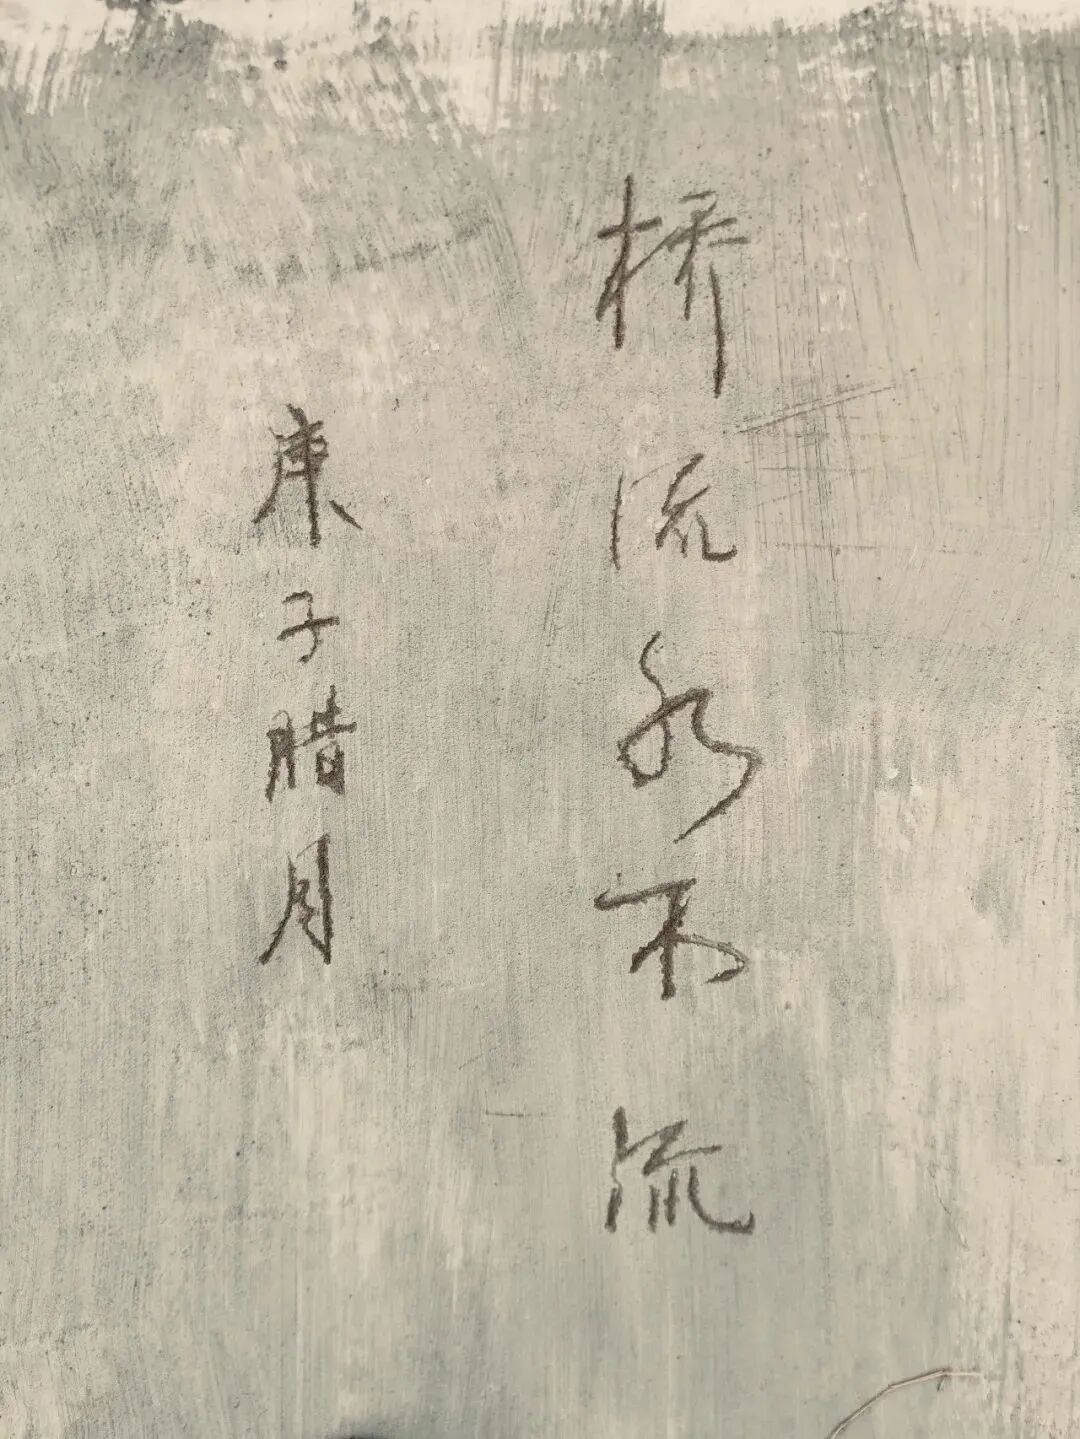 桥流水不流
庚子腊月